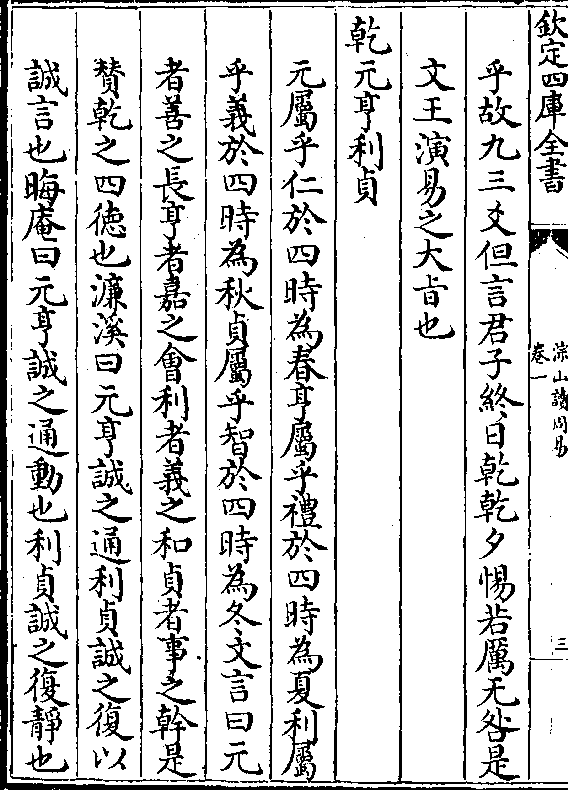 欽定四庫全書
涂山讀周易
卷一
三
乎故九三爻但言君子終日乾乾夕惕若厲无咎是
文王演易之大㫖也
乾元亨利貞
元屬乎仁於四時為春亨屬乎禮於四時為夏利屬
乎義於四時為秋貞屬乎智於四時為冬文言曰元
者善之長亨者嘉之會利者義之和貞者事之幹是
賛乾之四徳也濂溪曰元亨誠之通利貞誠之復以
誠言也晦庵曰元亨誠之通動也利貞誠之復靜也